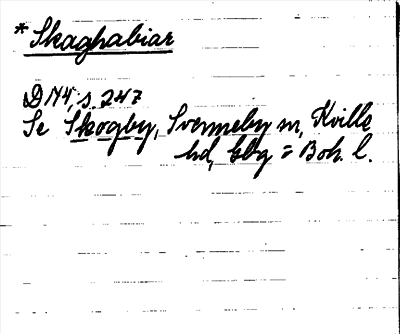 *Skaghabiar
DN4, s. 247
Se Skogby, Svenneby sn, Kville
hd, Gbg = Boh. l.